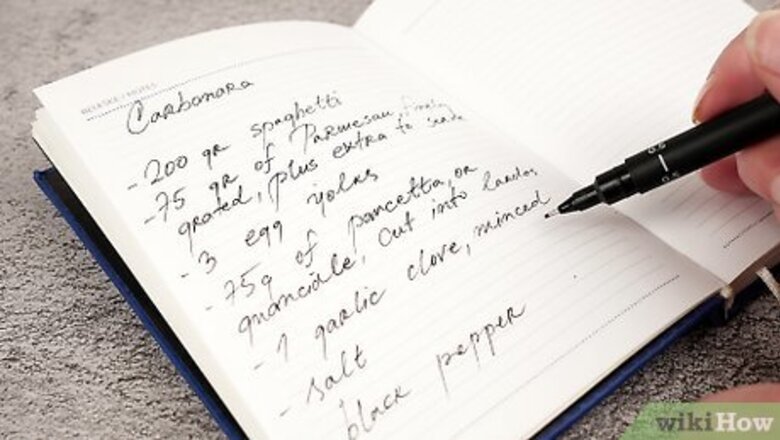 BELEŽKE / NOTES
Carbonara
- 200 gr spaghetti
- 75 gr of Parmesan finely
grated, plus extra to serve
- 3 egg yolks
- 75g of pancetta or
guanciale, cut into lardos
- 1 garlic clove, minced
- salt
black pepper
0.5
wikiHow